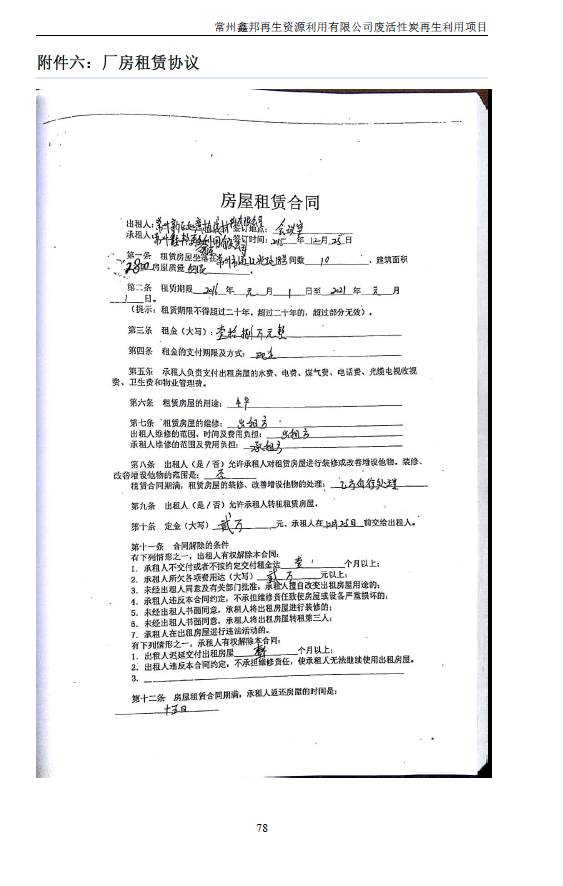 常州鑫邦再生资源利用有限公司废活性炭再生利用项目
附件六：厂房租赁协议
房屋租赁合同
出租人： 签订地点：会议室
承租人： 签订时间：2015年12月25日
第一条 租赁房屋坐落在 间数 10 、建筑面积
2800 房屋质量 。
第二条 租赁期限 2016 年 元 月 1 日至 2021 年 元 月
1 日。
（提示：租赁期限不得超过二十年，超过二十年的，超过部分无效）。
第三条 租金（大写）：壹拾捌万元整
第四条 租金的支付期限及方式：现金
第五条 承租人负责支付出租房屋的水费、电费、煤气费、电话费、光缆电视收视
费、卫生费和物业管理费。
第六条 租赁房屋的用途：生产
第七条 租赁房屋的维修：出租方
出租人维修的范围、时间及费用负担：出租方
承租人维修的范围及费用负担：承租方
第八条 出租人（是／否）允许承租人对租赁房屋进行装修或改善增设他物。装修、
改善增设他物的范围是：否
租赁合同期满，租赁房屋的装修、改善增设他物的处理：乙方自行处理
第九条 出租人（是／否）允许承租人转租租赁房屋。
第十条 定金（大写）贰万 元。承租人在 前交给出租人。
第十一条 合同解除的条件
有下列情形之一，出租人有权解除本合同：
1．承租人不交付或者不按约定交付租金达 壹 个月以上；
2．承租人所欠各项费用达（大写） 贰万 元以上；
3．未经出租人同意及有关部门批准，承租人擅自改变出租房屋用途的；
4．承租人违反本合同约定，不承担维修责任致使房屋或设备严重损坏的；
5．未经出租人书面同意，承租人将出租房屋进行装修的；
6．未经出租人书面同意，承租人将出租房屋转租第三人；
7．承租人在出租房屋进行违法活动的。
有下列情形之一，承租人有权解除本合同：
1．出租人迟延交付出租房屋 个月以上；
2．出租人违反本合同约定，不承担维修责任，使承租人无法继续使用出租房屋。
3．
第十二条 房屋租赁合同期满，承租人返还房屋的时间是：
十五日
78